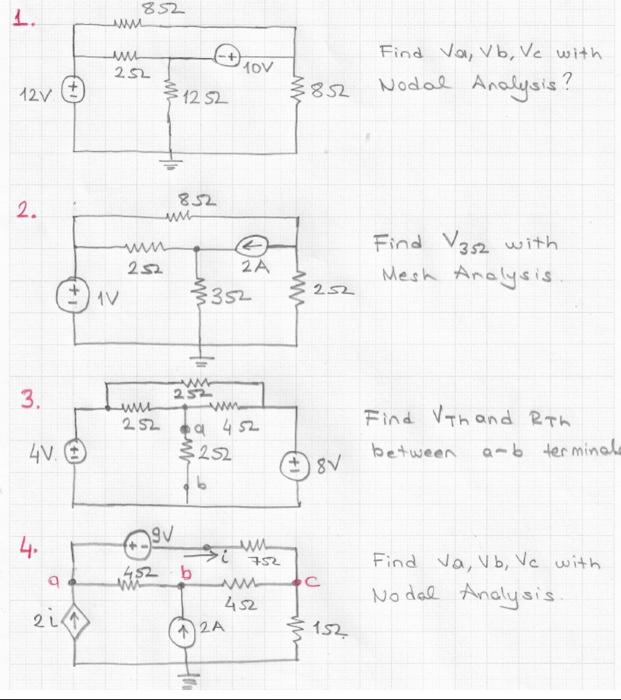 1.
8Ω
2Ω
- +
10V
12V
+
-
12Ω
8Ω
Find Va, Vb, Vc with
Nodal Analysis?
2.
8Ω
2Ω
2A
+
-
1V
3Ω
2Ω
Find V3Ω with
Mesh Analysis.
3.
2Ω
2Ω
a
4Ω
4V
+
-
2Ω
+
-
8V
b
Find VTh and RTh
between a-b terminals
4.
9V
+ -
i
7Ω
a
4Ω
b
4Ω
c
2i
2A
1Ω
Find Va, Vb, Vc with
Nodal Analysis.